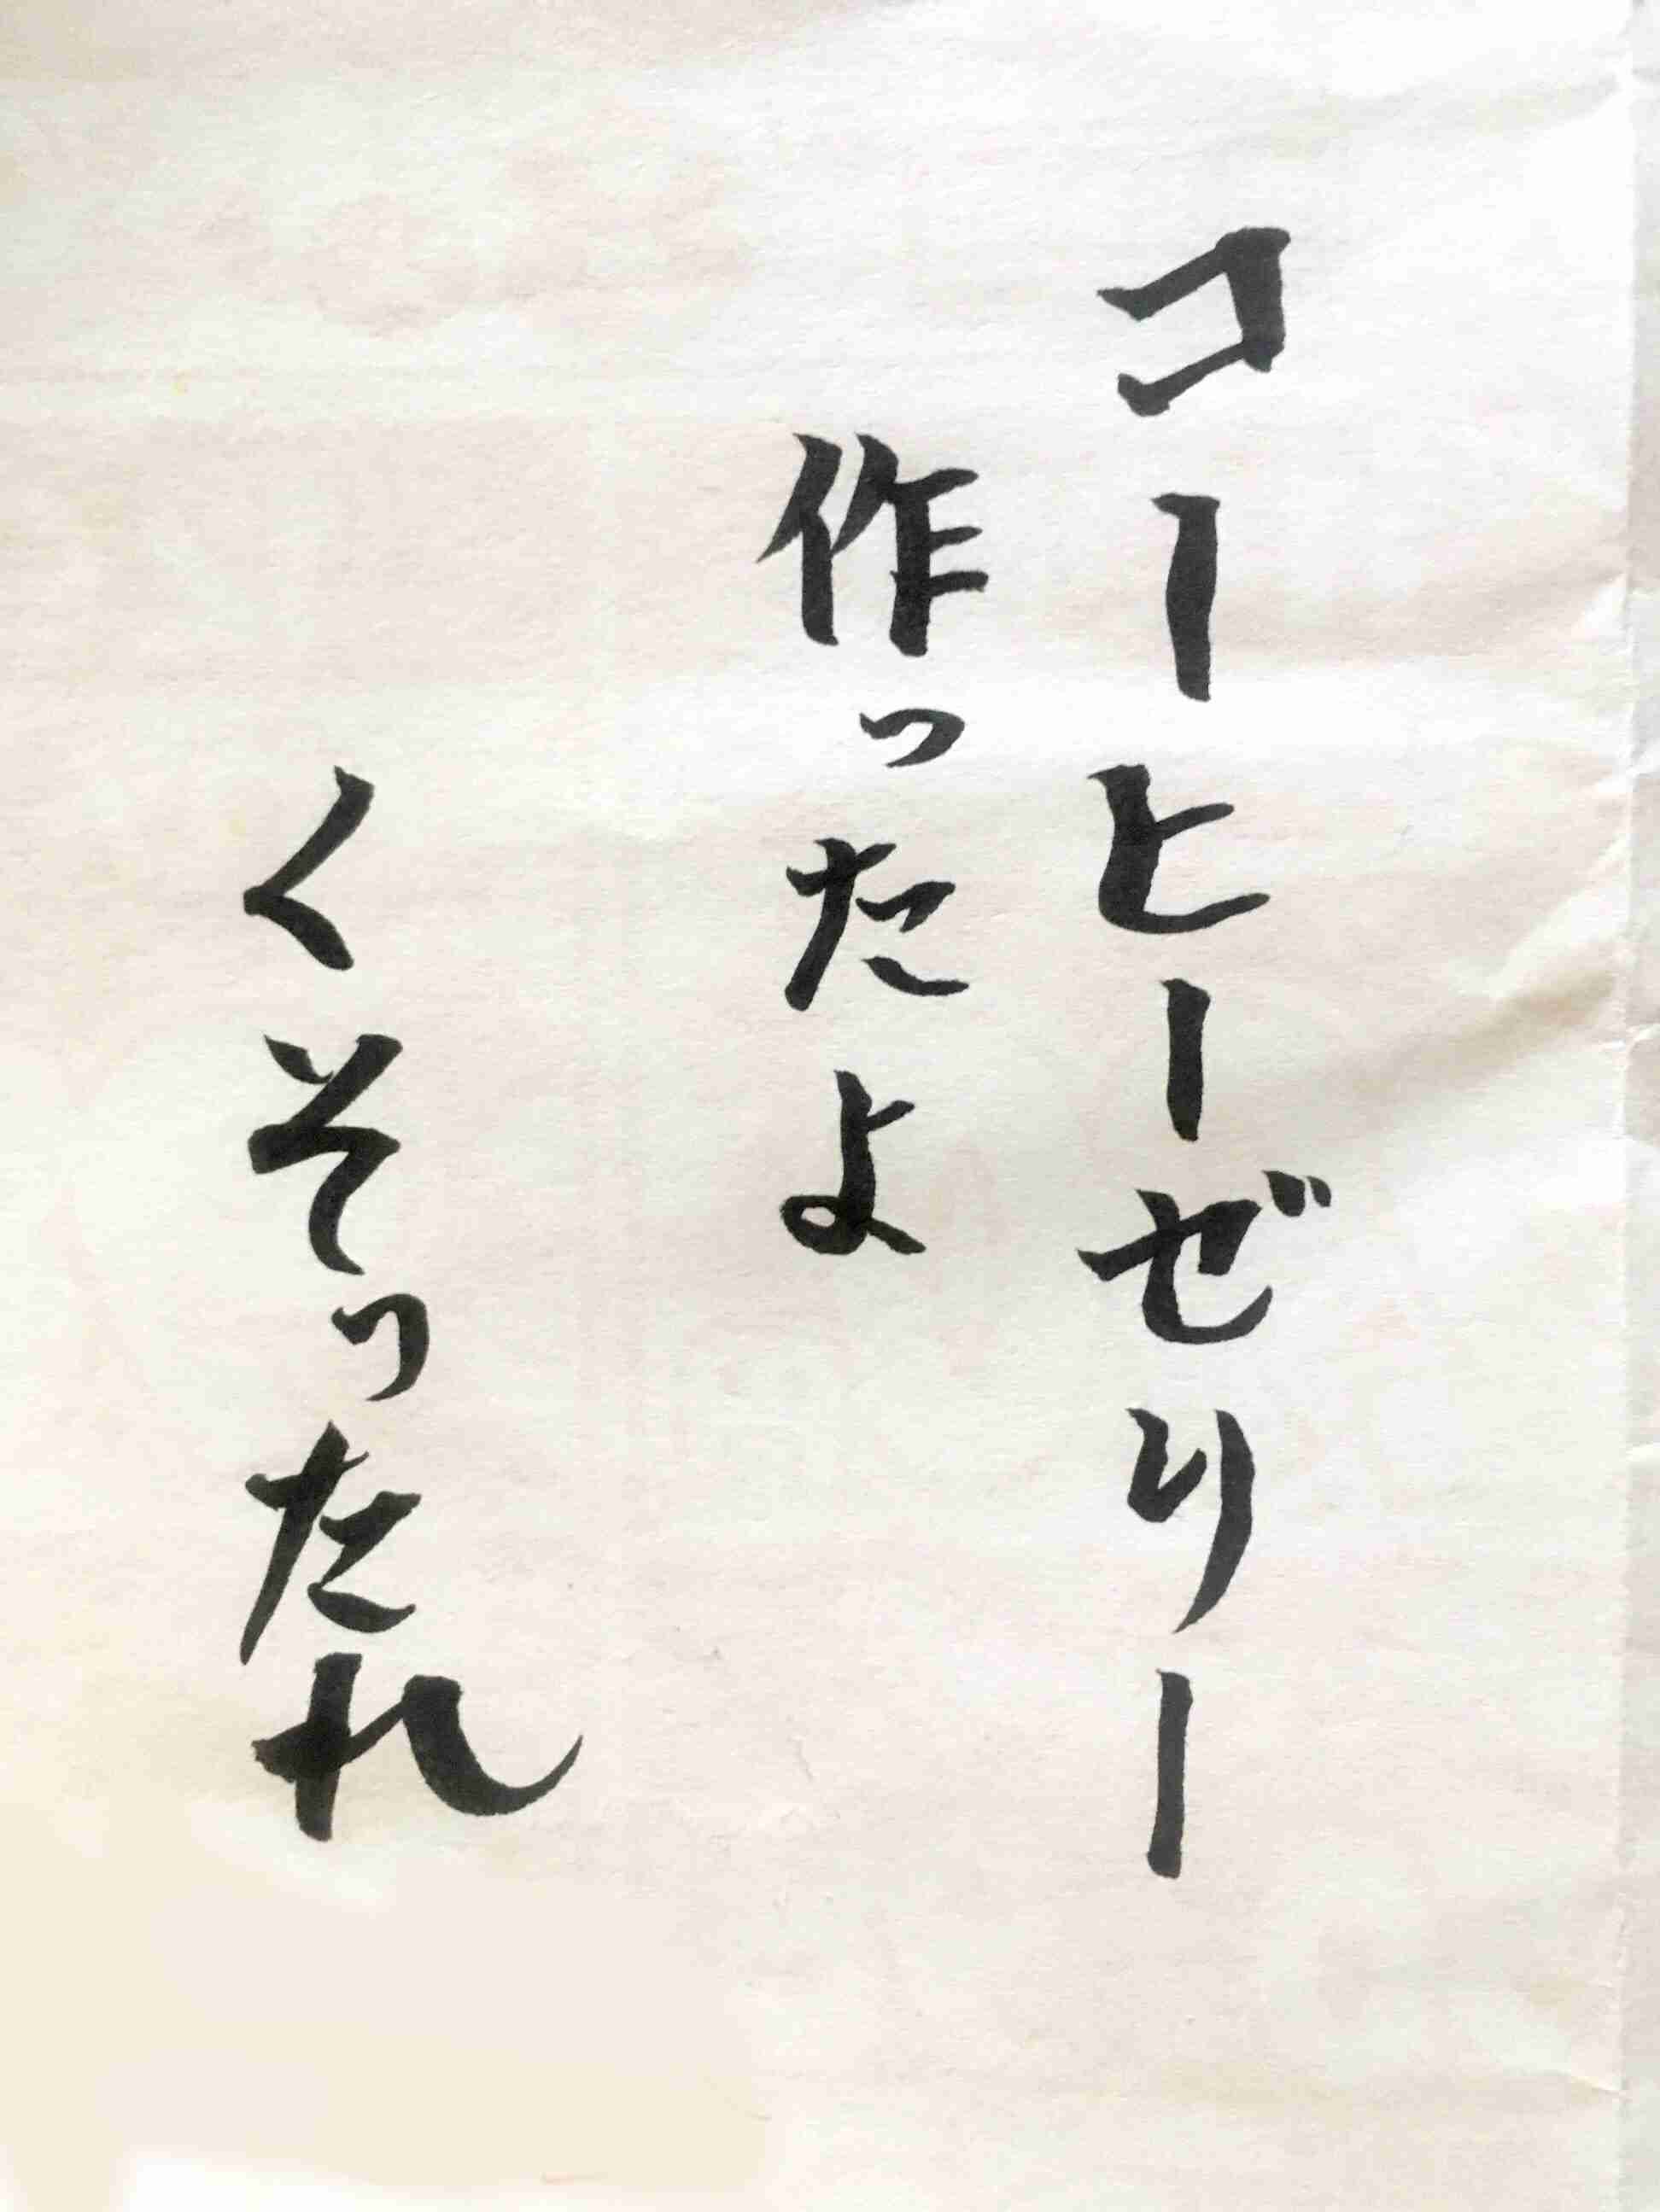 コーヒーゼリー
作ったよ
くそったれ